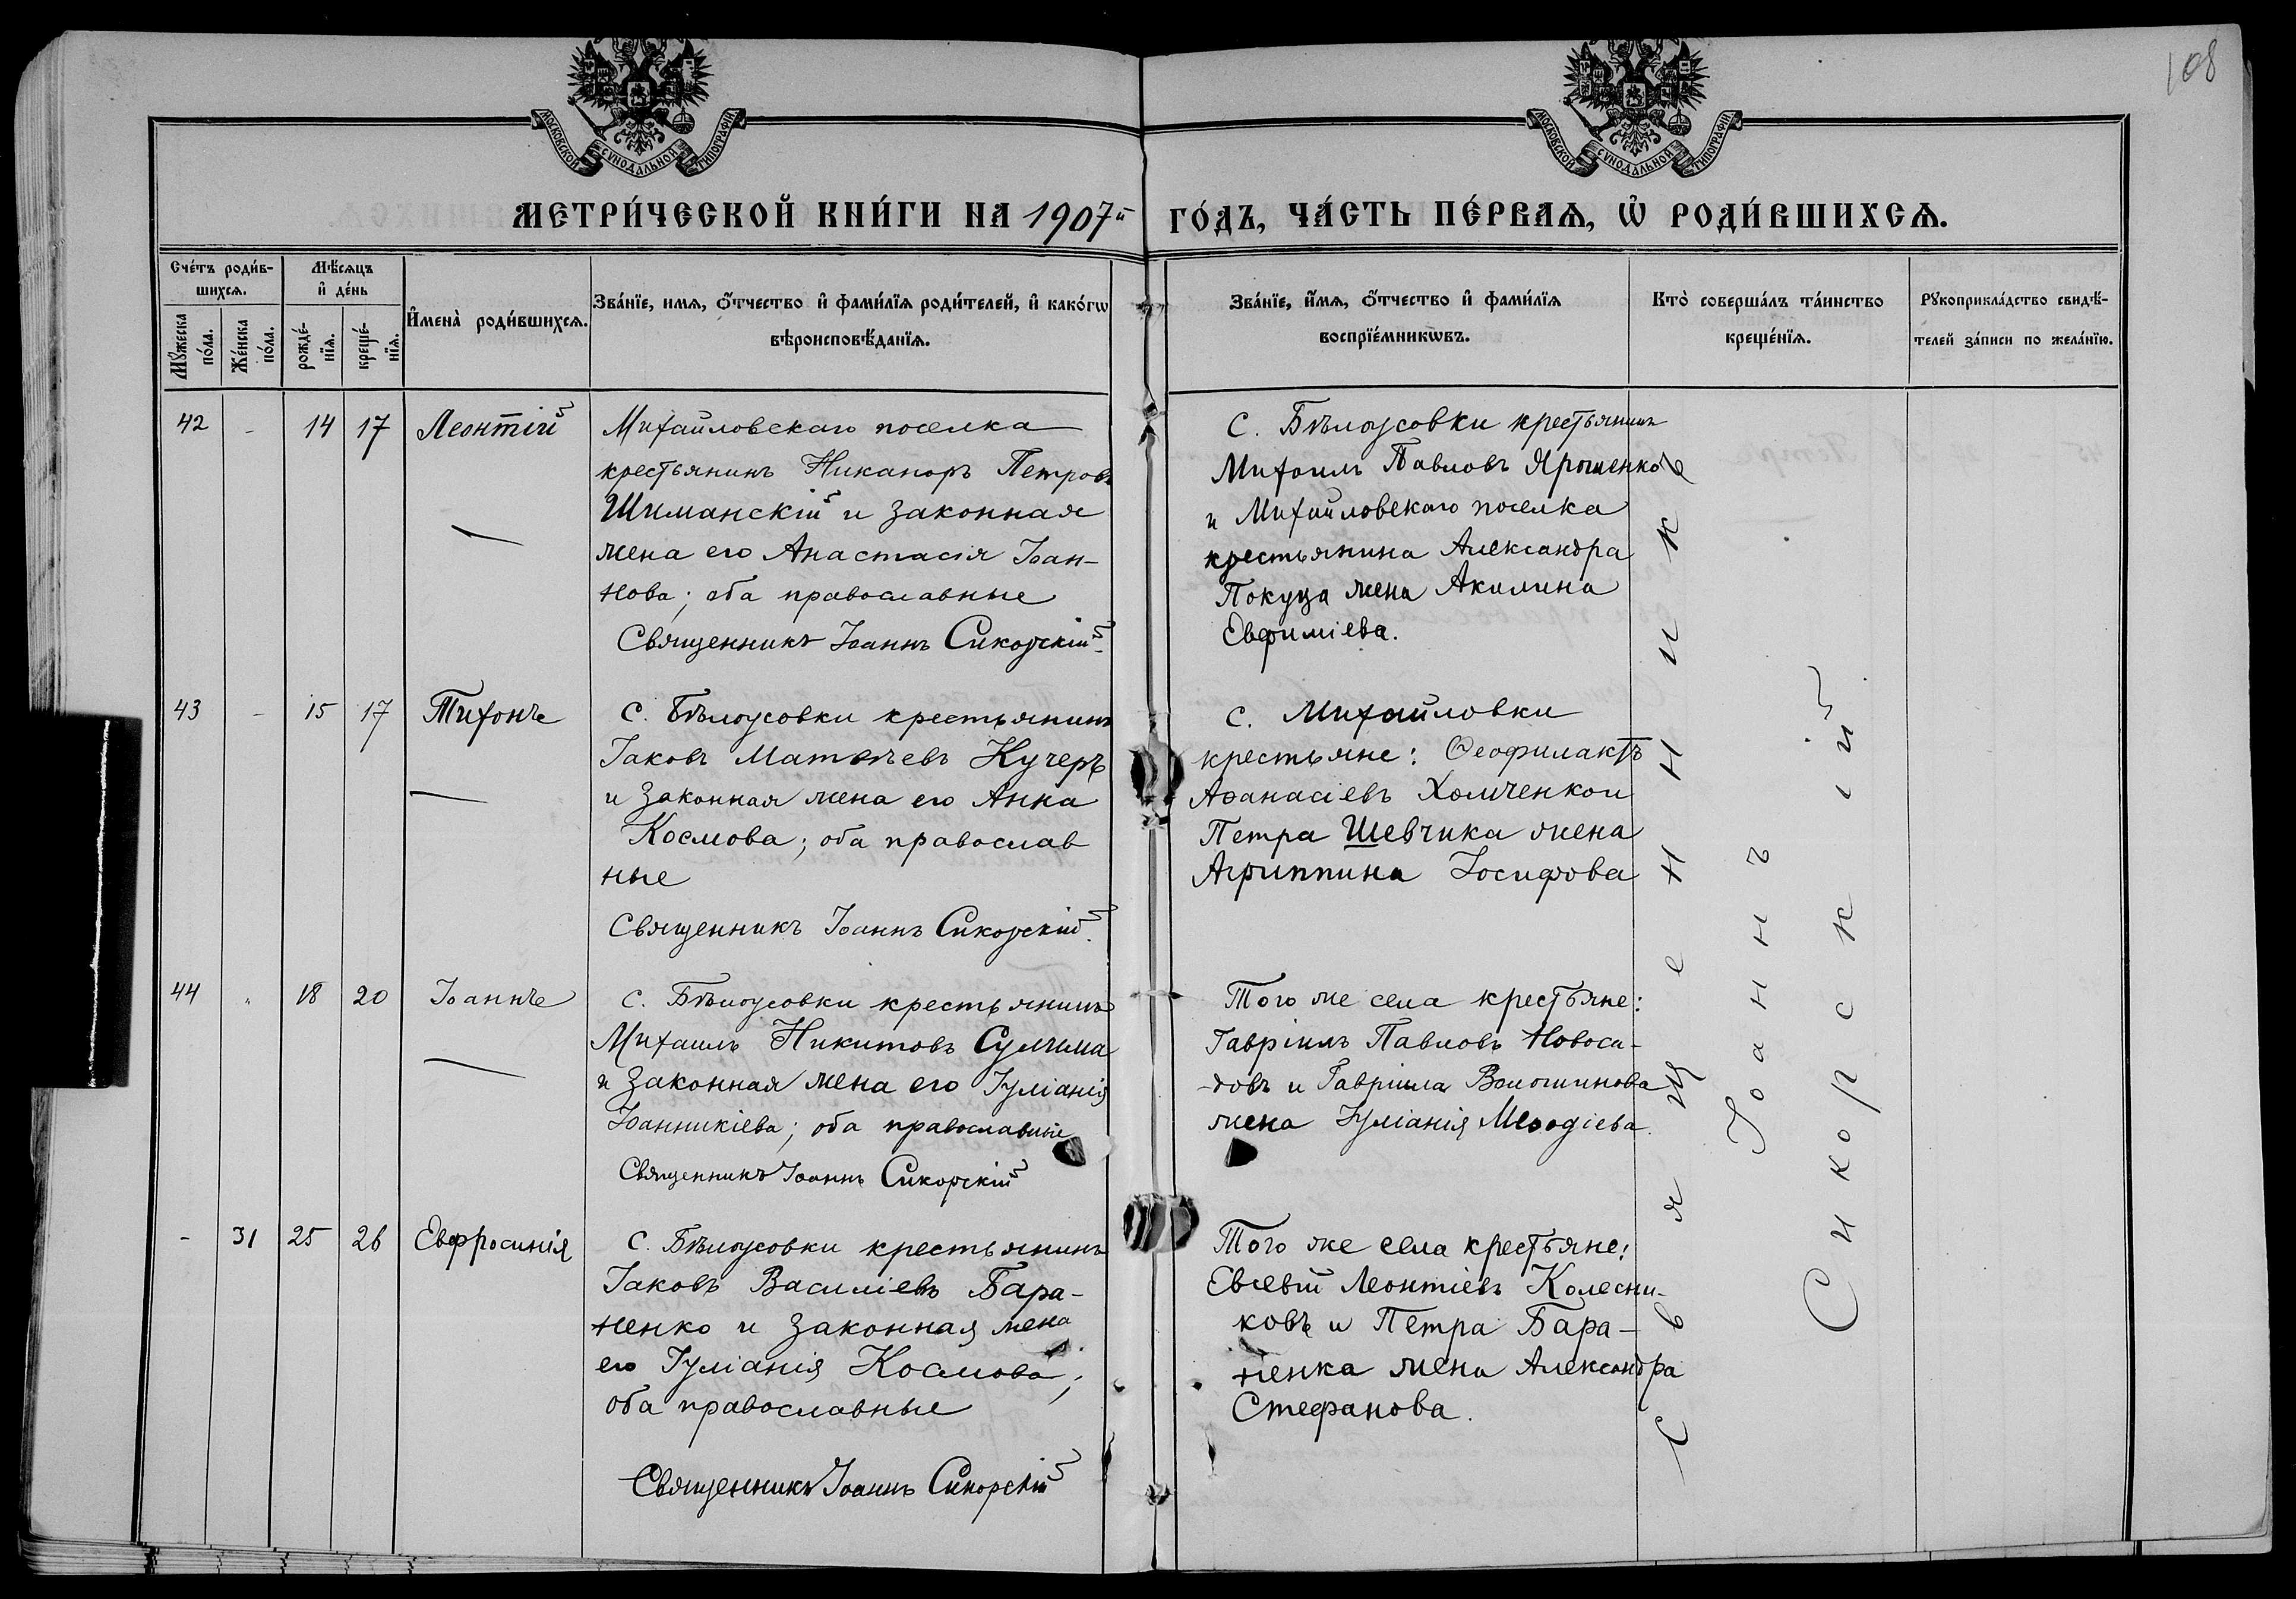 108
МОСКОВСКОЙ СУНОДАЛЬНОЙ ТИПОГРАФІИ
МОСКОВСКОЙ СУНОДАЛЬНОЙ ТИПОГРАФІИ
МЕТРИ́ЧЕСКОЙ КНИ́ГИ НА 1907й ГО́ДЪ, ЧА́СТЬ ПЕ́РВАѦ, Ѡ҆ РОДИ́ВШИХСѦ.
Сче́тъ роди́в-
шихсѧ.
Мꙋ́жеска по́ла.
Же́нска по́ла.
Мѣ́сѧцъ
и҆ де́нь
рожде́-
нїѧ.
креще́-
нїѧ.
И҆мена̀ роди́вшихсѧ.
Зва́нїе, имѧ, ѻ҆́тчество и҆ фами́лїѧ роди́телей, и҆ како́гѡ
вѣроисповѣ́данїѧ.
Зва́нїе, и҆́мѧ, ѻ҆́тчество и҆ фами́лїѧ
воспрїе́мникѡвъ.
Кто̀ соверша́лъ та́инство
креще́нїѧ.
Рꙋкоприкла́дство свидѣ́-
телей за́писи по жела́нїю.
42 - 14 17 Леонтій
Михайловскаго поселка
крестьянинъ Никаноръ Петровъ
Шиманскій и законная
жена его Анастасія Іоан-
нова; оба православные
Священникъ Іоаннъ Сикорскій.
С. Бѣлоусовки крестьянинъ
Михаилъ Павловъ Ярошенко
и Михайловскаго поселка
крестьянина Александра
Покуца жена Акилина
Евфиміева.
43 - 15 17 Тихонъ
С. Бѣлоусовки крестьянинъ
Іаковъ Матвѣевъ Кучеръ
и законная жена его Анна
Космова; оба православ
ные
Священникъ Іоаннъ Сикорскій.
С. Михайловки
крестьяне: Ѳеофилактъ
Аѳанасіевъ Хомченко и
Петра Шевчика жена
Агриппина Іосифова
44 " 18 20 Іоаннъ
С. Бѣлоусовки крестьянинъ
Михаилъ Никитовъ Сулима
и законная жена его Іуліанія
Іоанникіева; оба православные
Священникъ Іоаннъ Сикорскій
Того же села крестьяне:
Гавріилъ Павловъ Новоса-
довъ и Гавріила Волошинова
жена Іуліанія Меѳодіева.
- 31 25 26 Евфросинія
С. Бѣлоусовки крестьянинъ
Іаковъ Василіевъ Бара-
ненко и законная жена
его Іуліанія Космова;
оба православные
Священникъ Іоаннъ Сикорскій
Того же села крестьяне:
Евсевій Леонтіевъ Колесни-
ковъ и Петра Бара-
ненка жена Александра
Стефанова.
Священникъ
Іоаннъ
Сикорскій